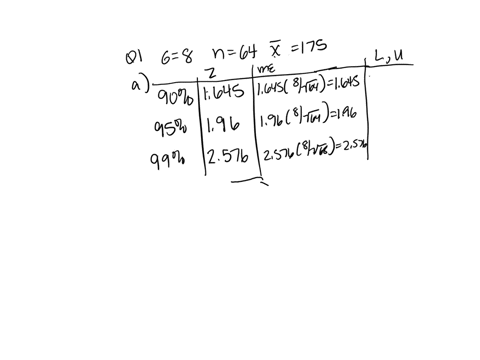 Q1 σ=8 n=64 x̄=175
a) Z ME L, U
90% 1.645 1.645(8/√64)=1.645
95% 1.96 1.96(8/√64)=1.96
99% 2.576 2.576(8/√64)=2.576